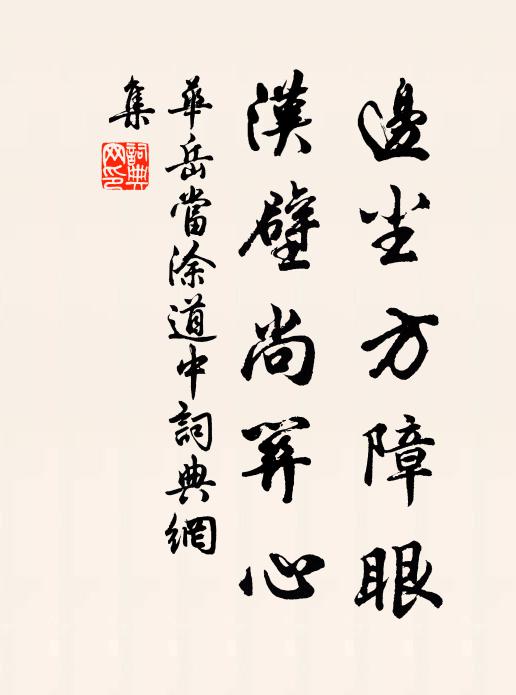 邊尘方障眼
漢壁尚心
華岳當涂道中詞典網
集
詞典網印